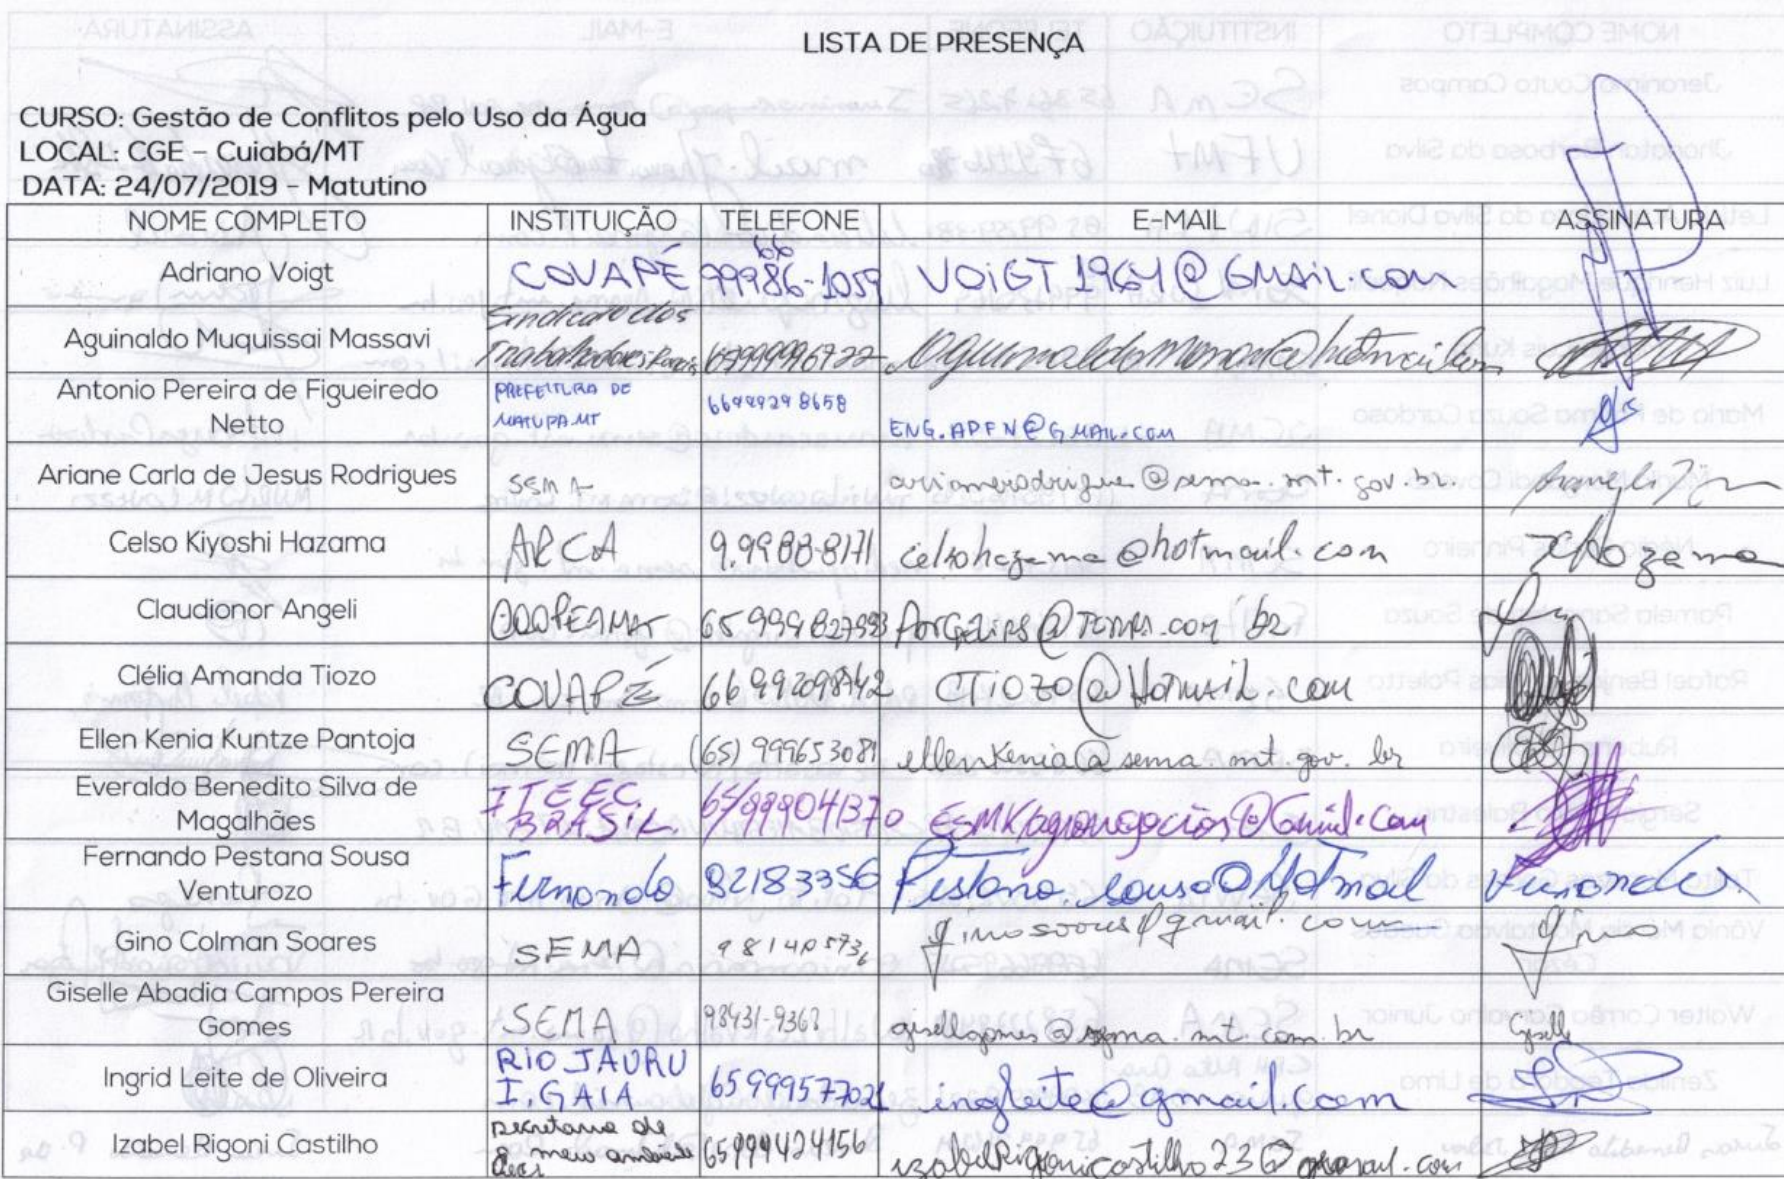 LISTA DE PRESENÇA
CURSO: Gestão de Conflitos pelo Uso da Água
LOCAL: CGE - Cuiabá/MT
DATA: 24/07/2019 - Matutino
NOME COMPLETO INSTITUIÇÃO TELEFONE E-MAIL ASSINATURA
Adriano Voigt COVAPÉ 66 99986-1059 VOIGT1964@GMAIL.COM
Aguinaldo Muquissai Massavi Sindicato dos Trabalhadores Rurais
Antonio Pereira de Figueiredo Netto PREFEITURA DE MATUPA.MT 66999298658 ENG.APFN@GMAIL.COM
Ariane Carla de Jesus Rodrigues SEMA @sema.mt.gov.br
Celso Kiyoshi Hazama ARCA 9.9988-8171 celsohazama@hotmail.com Hazama
Claudionor Angeli
Clélia Amanda Tiozo COVAPÉ CTiozo@Hotmail.com
Ellen Kenia Kuntze Pantoja SEMA (65) 999653081 ellenkenia@sema.mt.gov.br
Everaldo Benedito Silva de Magalhães ITEEC BRASIL 65/999041370
Fernando Pestana Sousa Venturozo Fernando 92183356 Pestana.sousa@Hotmail Fernando
Gino Colman Soares SEMA 981405736 ginosoares@gmail.com Gino
Giselle Abadia Campos Pereira Gomes SEMA gisellegomes@sema.mt.com.br Giselle
Ingrid Leite de Oliveira RIO JAURU I.GAIA 65 999577021 ingleite@gmail.com
Izabel Rigoni Castilho secretaria de meio ambiente 65999424156 izabelrigonicastilho23@gmail.com